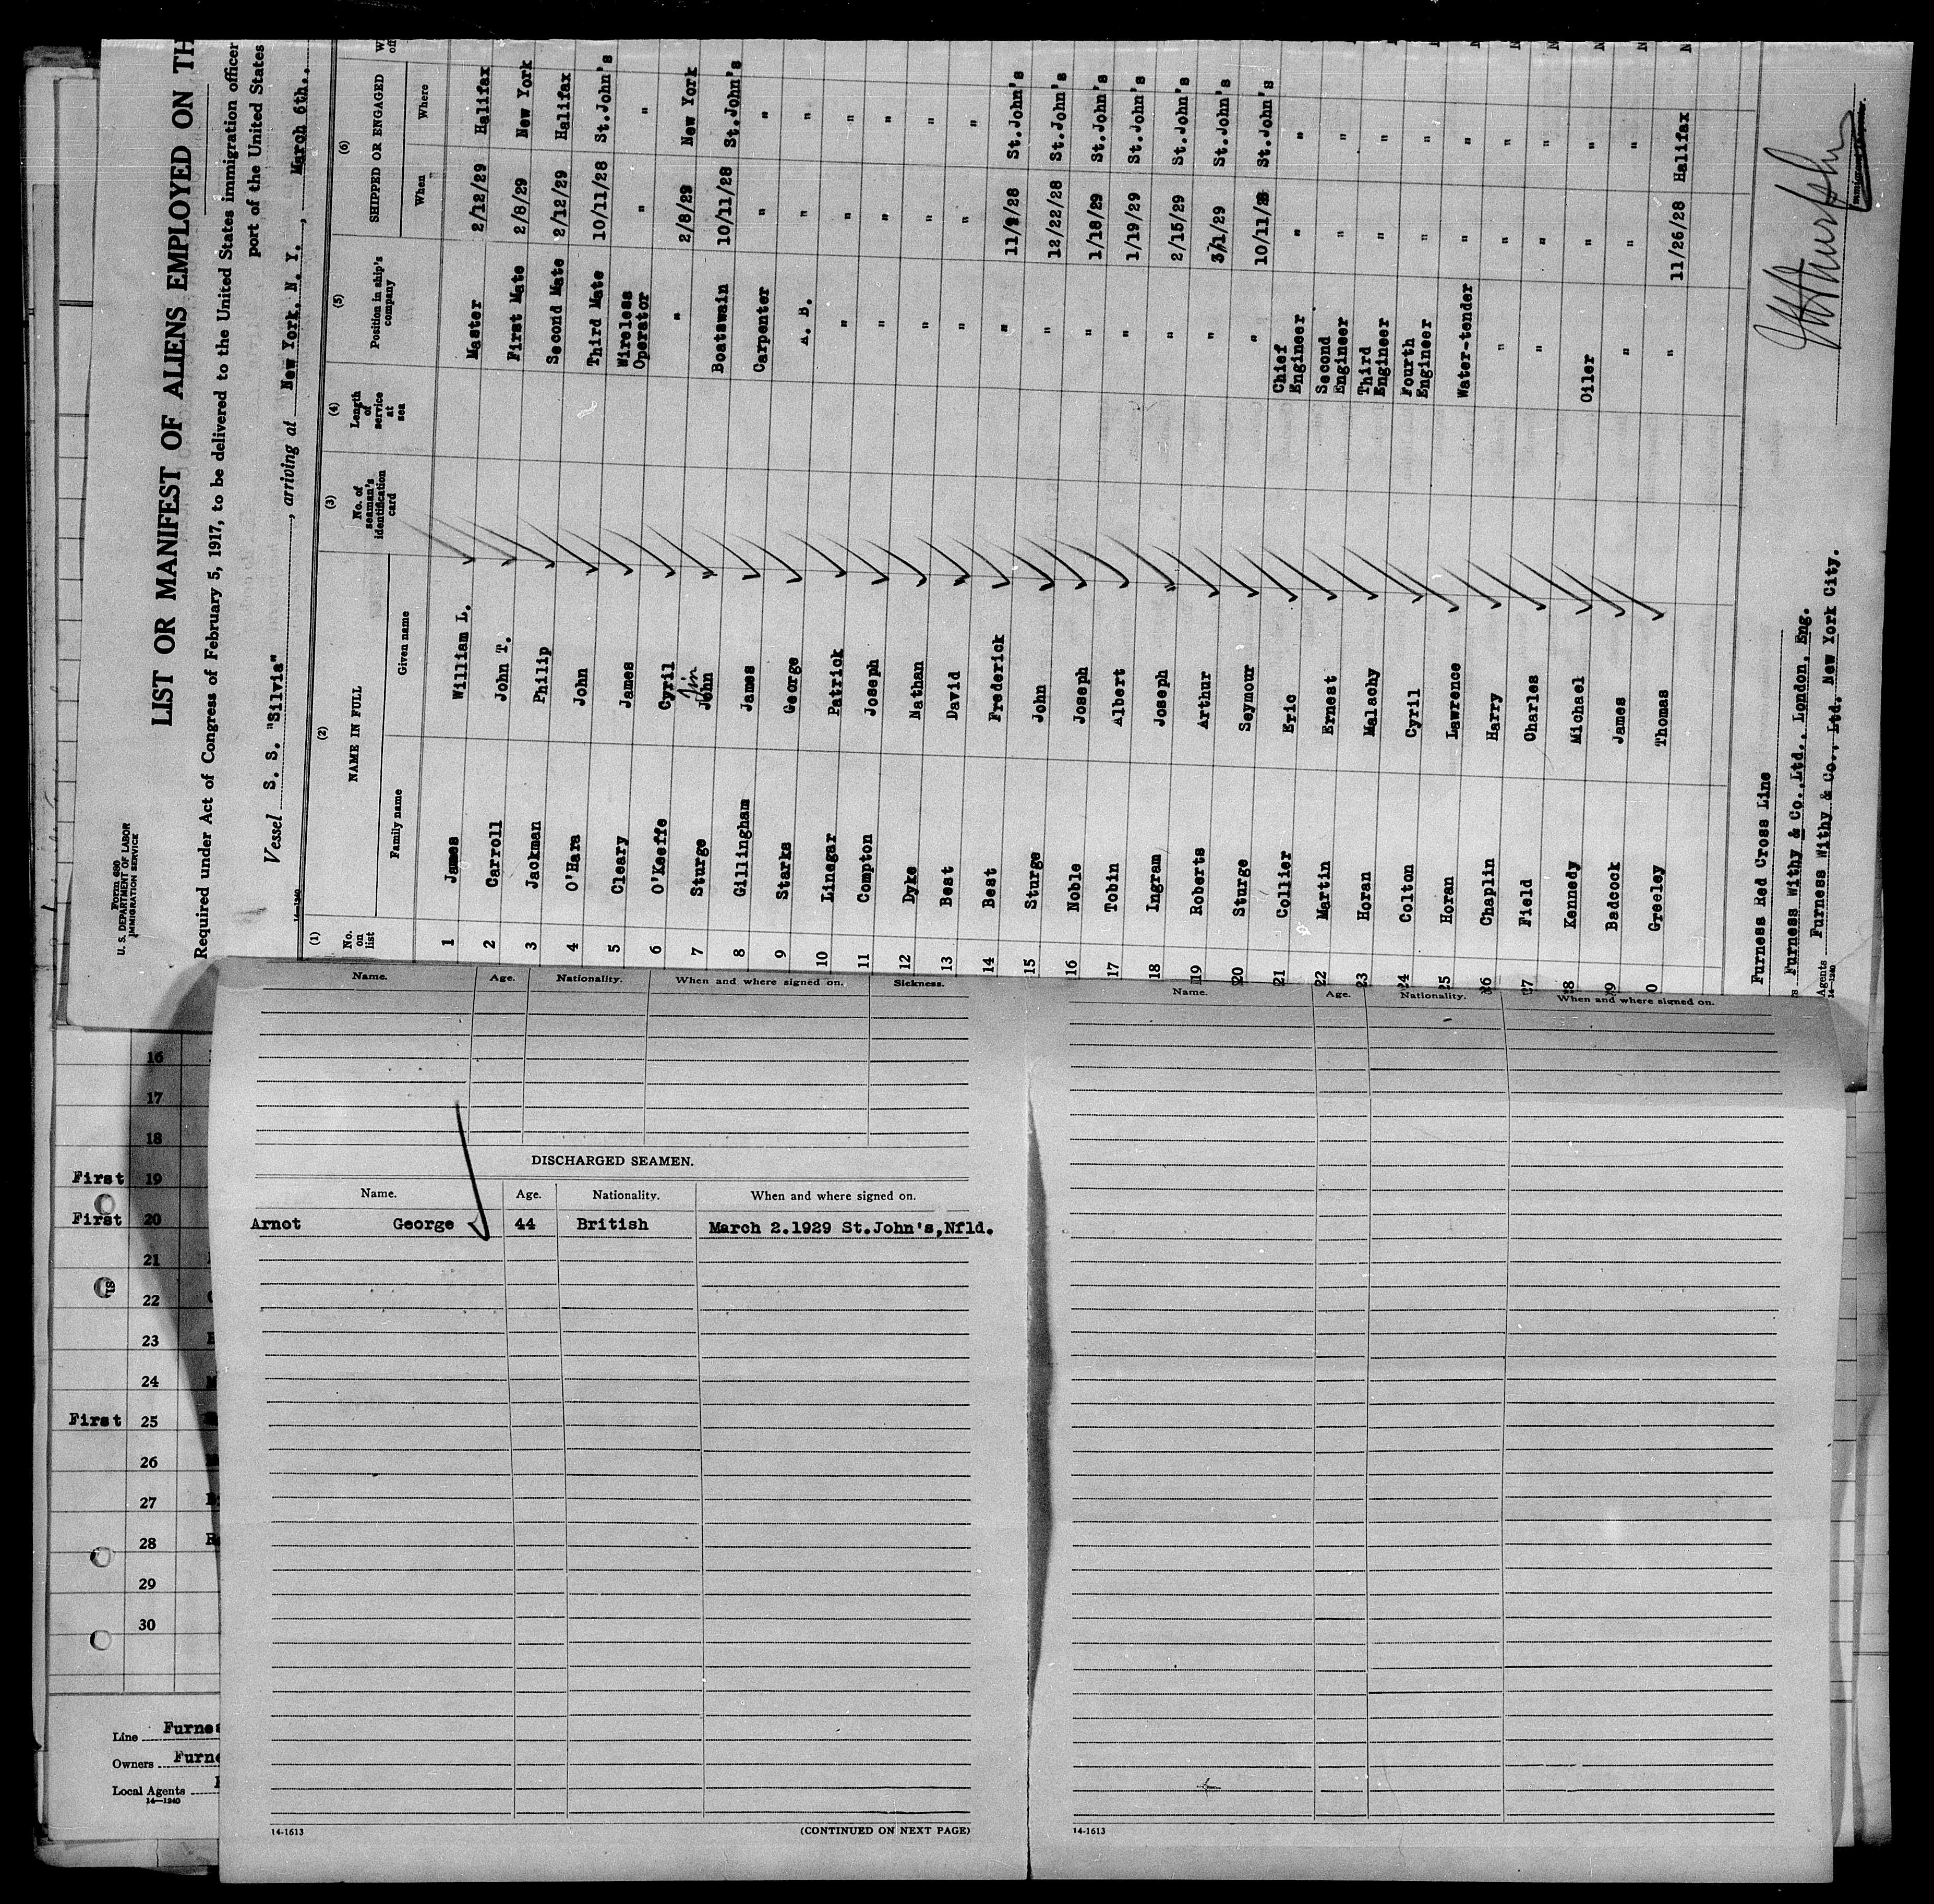 Form 680
U. S. DEPARTMENT OF LABOR
IMMIGRATION SERVICE
LIST OR MANIFEST OF ALIENS EMPLOYED ON TH
Required under Act of Congress of February 5, 1917, to be delivered to the United States immigration officer
port of the United States
Vessel S. S. "Silvia", arriving at New York, N. Y., March 6th.,
14-1240
(1) (2) (3) (4) (5) (6)
No. on list NAME IN FULL No. of seaman's identification card Length of service at sea Position in ship's company SHIPPED OR ENGAGED
Family name Given name When Where
1 James William L. Master 2/12/29 Halifax
2 Carroll John T. First Mate 2/8/29 New York
3 Jackman Philip Second Mate 2/12/29 Halifax
4 O'Hara John Third Mate 10/11/28 St.John's
5 Cleary James Wireless Operator " "
6 O'Keeffe Cyril " 2/8/29 New York
7 Sturge John Jim Boatswain 10/11/28 St.John's
8 Gillingham James Carpenter " "
9 Starks George A. B. " "
10 Linegar Patrick " " "
11 Compton Joseph " " "
12 Dyke Nathan " " "
13 Best David " " "
14 Best Frederick " 11/ /28 St.John's
15 Sturge John " 12/22/28 St.John's
16 Noble Joseph " 1/18/29 St.John's
17 Tobin Albert " 1/19/29 St.John's
18 Ingram Joseph " 2/15/29 St.John's
19 Roberts Arthur " 3/1/29 St.John's
20 Sturge Seymour " 10/11/28 St.John's
21 Collier Eric Chief Engineer " "
22 Martin Ernest Second Engineer " "
23 Horan Malachy Third Engineer " "
24 Colton Cyril Fourth Engineer " "
25 Horan Lawrence Water-tender " "
26 Chaplin Harry " " "
27 Field Charles " " "
28 Kennedy Michael Oiler " "
29 Badcock James " " "
0 Greeley Thomas " 11/26/28 Halifax
Furness Red Cross Line
Furness Withy & Co.,Ltd., London, Eng.
Agents Furness Withy & Co., Ltd. New York City.
14-1240
Name. Age. Nationality. When and where signed on. Sickness.
DISCHARGED SEAMEN.
Name. Age. Nationality. When and where signed on.
Arnot George 44 British March 2.1929 St.John's,Nfld.
14-1613 (CONTINUED ON NEXT PAGE)
Name. Age. Nationality. When and where signed on.
14-1613
16
17
18
First 19
First 20
21
22
23
24
First 25
26
27
28
29
30
Line Furne
Owners Furne
Local Agents
14-1240